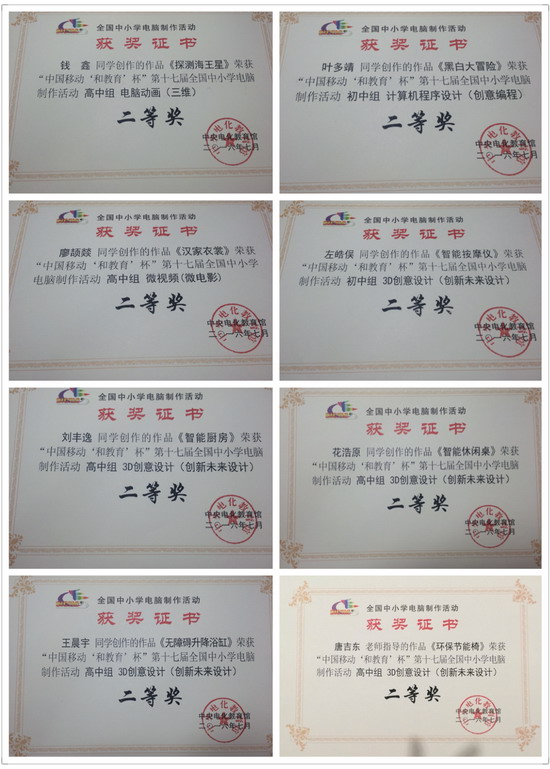 全国中小学电脑制作活动
获奖证书
钱鑫 同学创作的作品《探测海王星》荣获
“中国移动‘和教育’杯”第十七届全国中小学电脑
制作活动 高中组 电脑动画（三维）
二等奖
中央电化教育馆
二〇一六年七月
全国中小学电脑制作活动
获奖证书
叶多靖 同学创作的作品《黑白大冒险》荣获
“中国移动‘和教育’杯”第十七届全国中小学电脑
制作活动 初中组 计算机程序设计（创意编程）
二等奖
中央电化教育馆
二〇一六年七月
全国中小学电脑制作活动
获奖证书
廖颉燚 同学创作的作品《汉家衣裳》荣获
“中国移动‘和教育’杯”第十七届全国中小学
电脑制作活动 高中组 微视频(微电影)
二等奖
中央电化教育馆
二〇一六年七月
全国中小学电脑制作活动
获奖证书
左皓俣 同学创作的作品《智能按摩仪》荣获
“中国移动‘和教育’杯”第十七届全国中小学电脑
制作活动 初中组 3D创意设计（创新未来设计）
二等奖
中央电化教育馆
二〇一六年七月
全国中小学电脑制作活动
获奖证书
刘丰逸 同学创作的作品《智能厨房》荣获
“中国移动‘和教育’杯”第十七届全国中小学电脑
制作活动 高中组 3D创意设计（创新未来设计）
二等奖
中央电化教育馆
二〇一六年七月
全国中小学电脑制作活动
获奖证书
花浩原 同学创作的作品《智能休闲桌》荣获
“中国移动‘和教育’杯”第十七届全国中小学电脑
制作活动 高中组 3D创意设计（创新未来设计）
二等奖
中央电化教育馆
二〇一六年七月
全国中小学电脑制作活动
获奖证书
王晨宇 同学创作的作品《无障碍升降浴缸》荣获
“中国移动‘和教育’杯”第十七届全国中小学电脑
制作活动 高中组 3D创意设计（创新未来设计）
二等奖
中央电化教育馆
二〇一六年七月
全国中小学电脑制作活动
获奖证书
唐吉东 老师指导的作品《环保节能椅》荣获
“中国移动‘和教育’杯”第十七届全国中小学电脑
制作活动 高中组 3D创意设计（创新未来设计）
二等奖
中央电化教育馆
二〇一六年七月